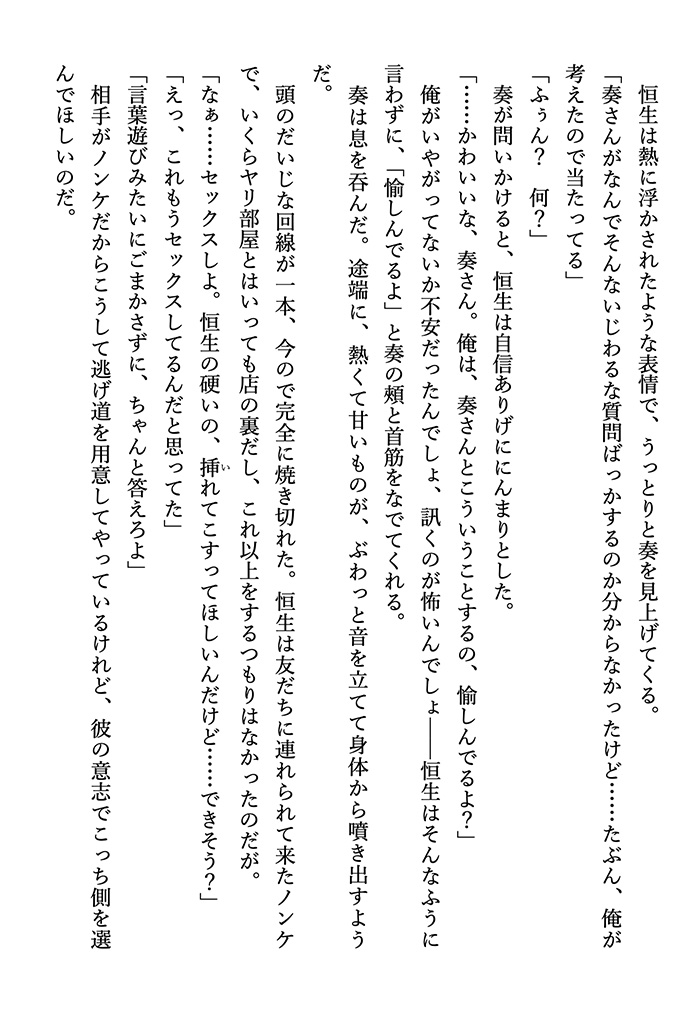 恒生は熱に浮かされたような表情で、うっとりと奏を見上げてくる。
「奏さんがなんでそんないじわるな質問ばっかするのか分からなかったけど……たぶん、俺が
考えたので当たってる」
「ふぅん？　何？」
奏が問いかけると、恒生は自信ありげににんまりとした。
「……かわいいな、奏さん。俺は、奏さんとこういうことするの、愉しんでるよ？」
俺がいやがってないか不安だったんでしょ、訊くのが怖いんでしょ――恒生はそんなふうに
言わずに、「愉しんでるよ」と奏の頬と首筋をなでてくれる。
奏は息を呑んだ。途端に、熱くて甘いものが、ぶわっと音を立てて身体から噴き出すよう
だ。
頭のだいじな回線が一本、今ので完全に焼き切れた。恒生は友だちに連れられて来たノンケ
で、いくらヤリ部屋とはいっても店の裏だし、これ以上をするつもりはなかったのだが。
「なぁ……セックスしよ。恒生の硬いの、挿いれてこすってほしいんだけど……できそう？」
「えっ、これもうセックスしてるんだと思ってた」
「言葉遊びみたいにごまかさずに、ちゃんと答えろよ」
相手がノンケだからこうして逃げ道を用意してやっているけれど、彼の意志でこっち側を選
んでほしいのだ。